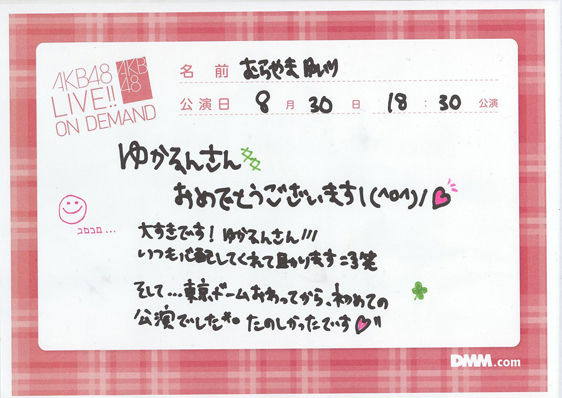 AKB48
LIVE!!
ON DEMAND
AKB
48
名 前 むらやま ゆいり
公演日 8 月 30 日 18 : 30 公演
ゆかるんさん
おめでとうございます\(^o^)/
コロコロ...
大すきです! ゆかるんさん!!!
いつも心配してくれて助かります=3笑
そして...東京ドームおわってから、初めての
公演でした*° たのしかったです
DMM.com